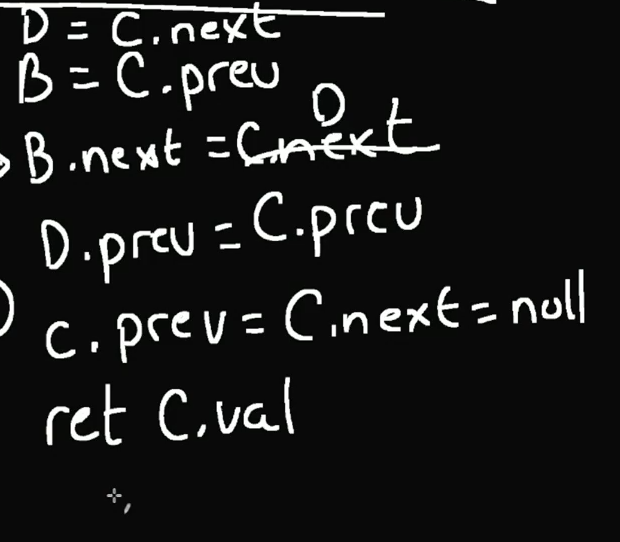 D = C.next
B = C.prev
D
B.next = C.next
D.prev = C.prev
C.prev = C.next = null
ret C.val